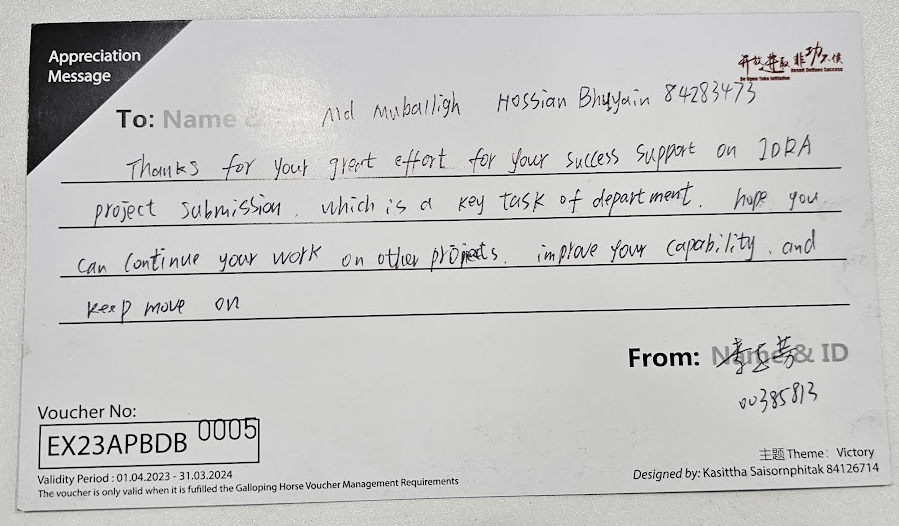 Appreciation
Message
开放进取 非功不侯
Be Open Take Initiative Result Defines Success
To: Name & Md Muballigh Hossian Bhuyain 84283473
Thanks for your great effort for your success support on IDRA
project submission. which is a key task of department. hope you
can continue your work on other projects. improve your capability. and
keep move on
From: Name & ID
00385813
Voucher No:
EX23APBDB 0005
Validity Period : 01.04.2023 - 31.03.2024
The voucher is only valid when it is fufilled the Galloping Horse Voucher Management Requirements
主题 Theme: Victory
Designed by: Kasittha Saisornphitak 84126714